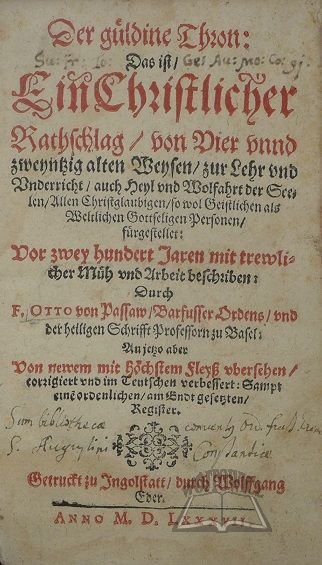 Der güldine Thron:
Das ist/
Ein Christlicher
Rathschlag / von Vier vnnd
zweyntzig alten Weysen / zur Lehr vnd
Vnderricht / auch Heyl vnd Wolfahrt der See-
len / Allen Christglaubigen / so wol Geistlichen als
Weltlichen Gottseligen Personen /
fürgestellet:
Vor zwey hundert Jaren mit trewli-
cher Müh vnd Arbeit beschriben:
Durch
F. OTTO von Passaw / Barfusser Ordens / vnd
der heiligen Schrifft Professorn zu Basel:
An jetzo aber
Von newem mit höchstem Fleyß vbersehen /
corrigiert vnd im Teutschen verbessert: Sampt
eine ordenlichen / am Endt gesetzten /
Register.
Sum bibliothecæ conventus
S. Augustini Constantiæ
Getruckt zu Ingolstatt / durch Wolffgang
Eder.
ANNO M. D. LXXXVII.